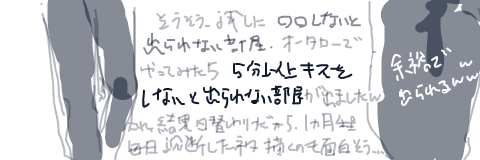 そうそう、試しに 〇〇しないと
出られない部屋、オータローで
やってみたら 5分以上キスを
しないと出られない部屋が出ましたw
これ結果日替わりだから、1カ月
毎日診断したネタ描くのも面白そう…
余裕で
出られるww